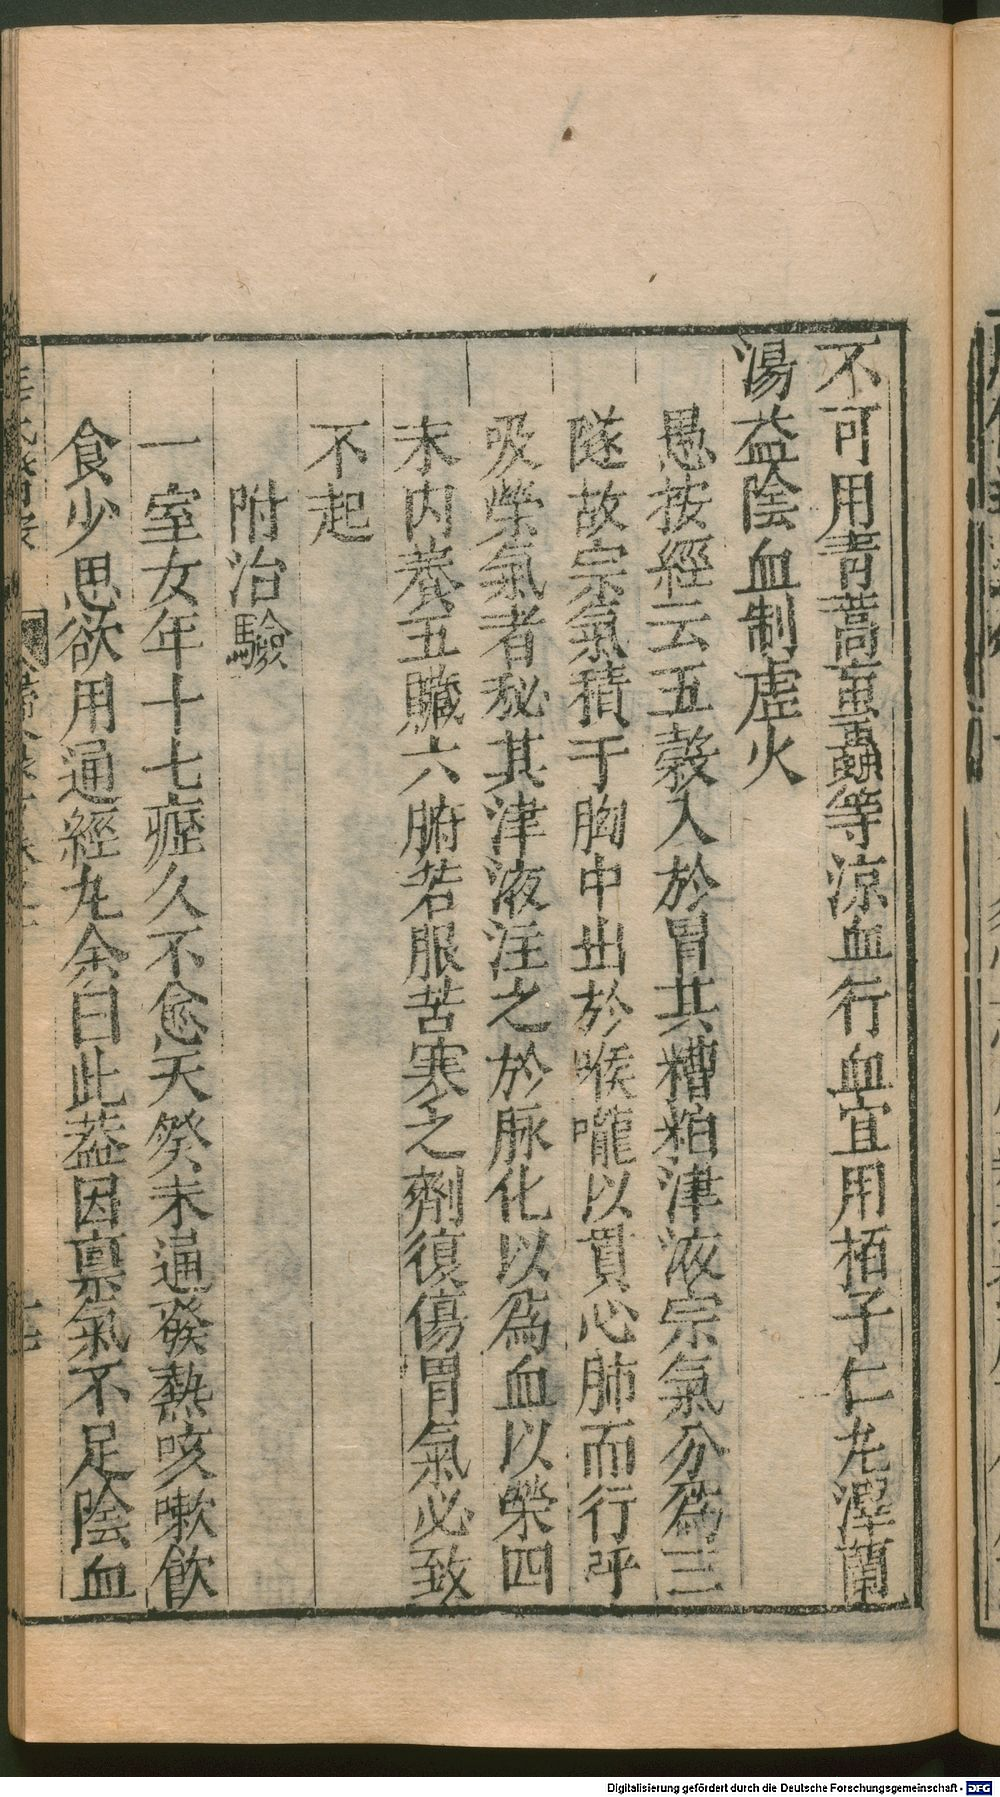 不可用青蒿䖟蟲等涼血行血宜用栢子仁丸澤蘭
湯益陰血制虗火
愚按經云五穀入於胃其糟粕津液宗氣分爲三
隧故宗氣積于胸中出於喉嚨以貫心肺而行乎
吸榮氣者秘其津液注之於脉化以爲血以榮四
末内養五臟六腑若服苦寒之劑復傷胃氣必致
不起
附治驗
一室女年十七瘧久不愈天癸未通發熱咳嗽飲
食少思欲用通經丸余曰此葢因禀氣不足陰血
Digitalisierung gefördert durch die Deutsche Forschungsgemeinschaft - DFG